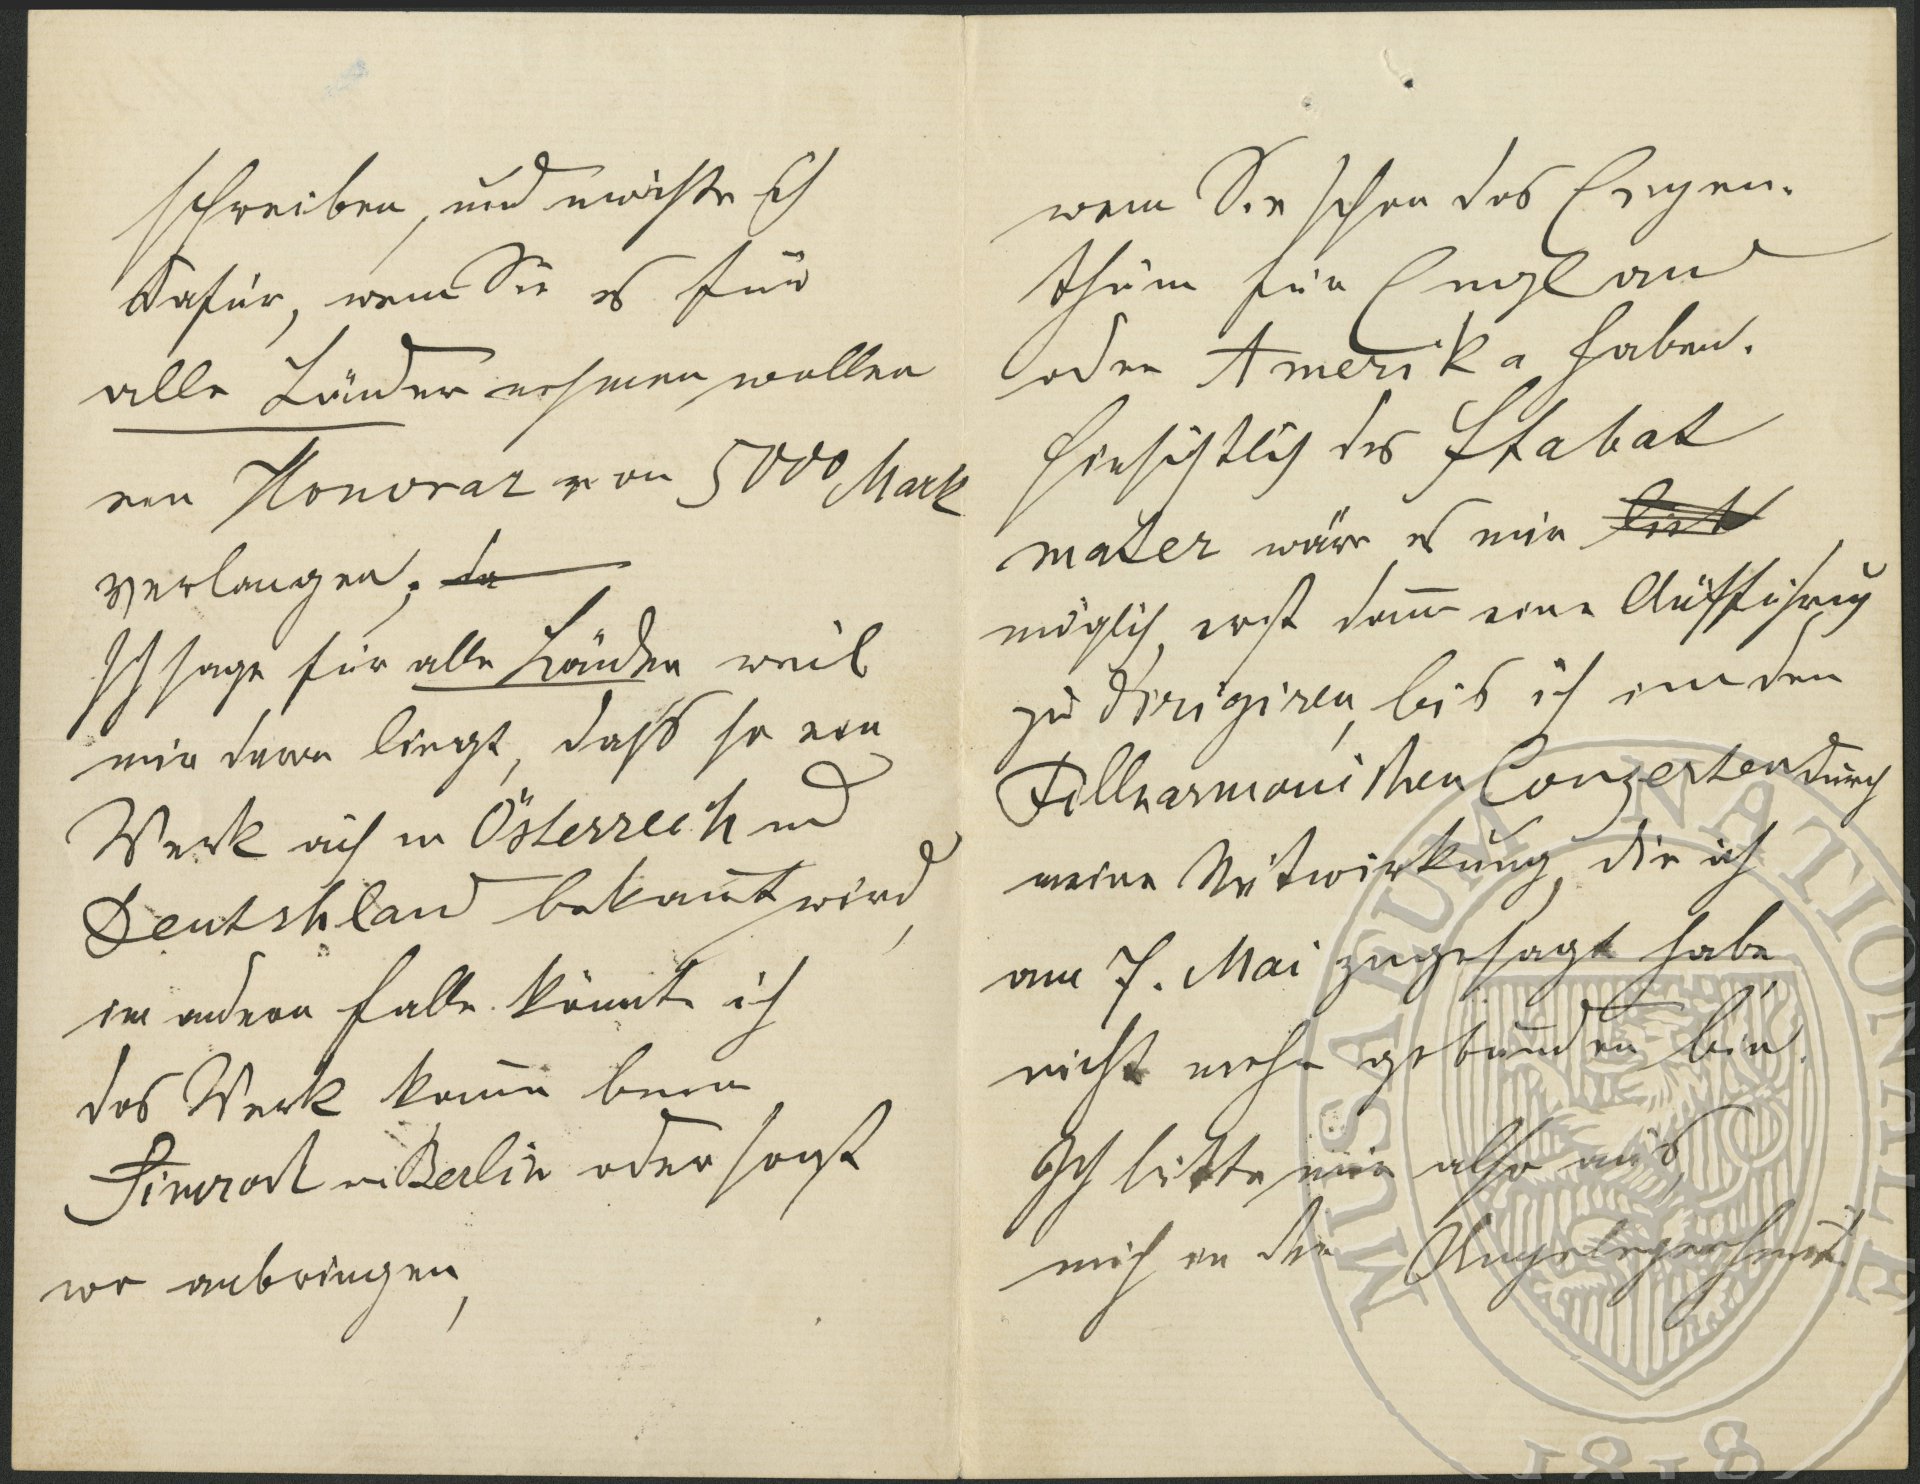 schreiben, und möchte ich
dafür, wenn Sie es für
alle Länder nehmen wollen
ein Honorar von 5000 Mark
verlangen; da
Ich sage für alle Länder weil
mir daran liegt, dass so ein
Werk auch in Österreich und
Deutschland bekannt wird,
im andern Falle könnte ich
das Werk kaum beim
Simrock in Berlin oder sonst
wo anbringen,
wenn Sie schon das Eigen-
thum für England
oder Amerika haben.
Hinsichtlich des Stabat
mater wäre es mir
möglich, erst dann eine Aufführung
zu dirigiren, bis ich in den
Filharmonischen Conzerten durch
meine Mitwirkung, die ich
am 7. Mai zugesagt habe,
nicht mehr gebunden bin.
Ich bitte mir also aus,
mich in der Angelegenheit
MUSAEUM NATIONALE
1818